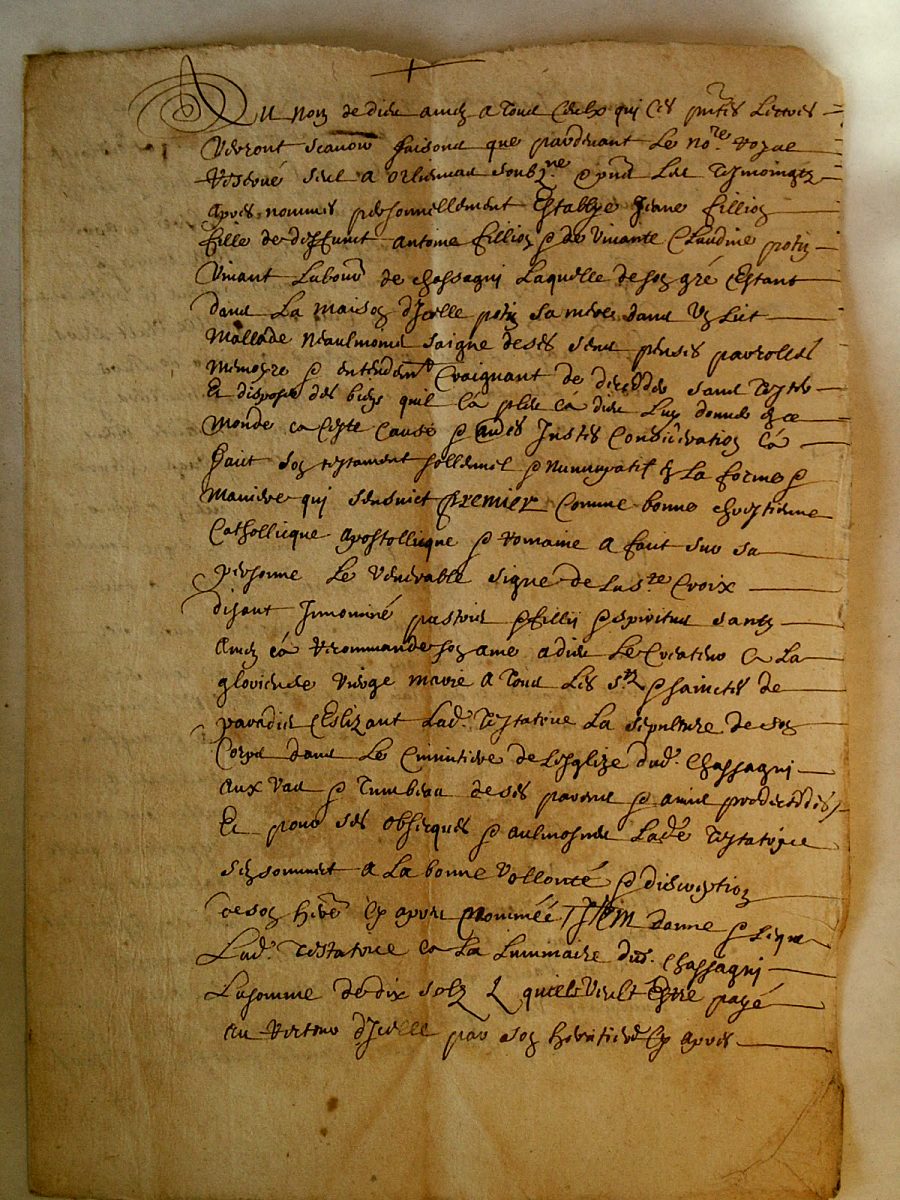 Au Nom de dieu amen a Tous Ceulx qui Ces pntes Lettres
Verront scavoir faisons que pardevant Le nore Royal
Reservé seul a orliennas soubzne & pnts Les tesmoingtz
apres nommes personnellement Establye Jeane fillion
fille de deffunct antoine fillion & de Vivante Claudine
Vivant Labour de Chassagni Laquelle de son gré Estant
dans La maison d'Icelle sa mere dans Un Lict
Mallade Neaulmoins saigne de ses sens penses parrolles
Memoyre & entendemt Craignant de decedder sans tester
Et disposer des biens quil a pleu a dieu Luy donner en ce
Monde a Ceste Cause & Justes Consideration a
faict son testament sollemel & Nuncupatif en La forme &
Maniere qui sensuict Premier Comme bonne chrestienne
Catholicque apostollicque & Romaine a faict sur sa
personne Le Venerable signe de La ste Croix
disant Innominé pastris & fillii & spiritus santy
Amen a recommande son ame a dieu Le Createur a La
glorieuse Vierge marie a Tous Les sts & sainctes de
paradis Eslizant Lad. Testatrice La sepulture de son
Corps dans Le Cimintiere de Lesglize dud. Chassagni
aux Vas & Tumbeau de ses parens & amis predeceddes
Et pour ses obsecques & aulmosnes Ladé Testatrice
sen sommet a La bonne Vollonté & discreption
de son here Cy apres Nommée Item donne & Legue
Lad. Testatrice a La Luminaire dud. Chassagni
La somme de dix solz quelle Veult Estre payé
au d'Icelle par son heritiere Cy apres